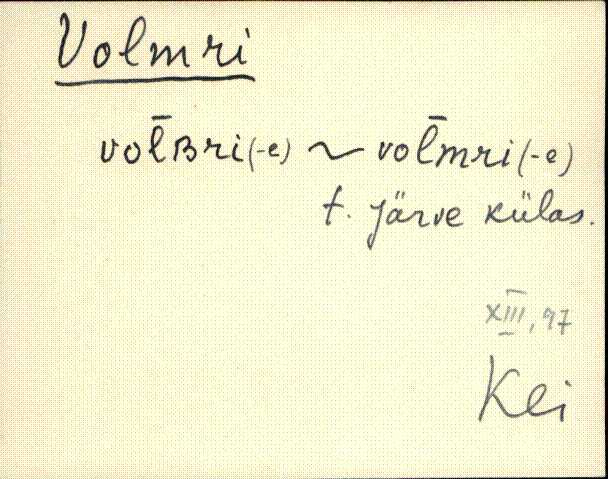 Volmri
vol̄ʙri (-e) ~ vol̄mri (-e)
t. Järve külas.
XIII, 97
Kei